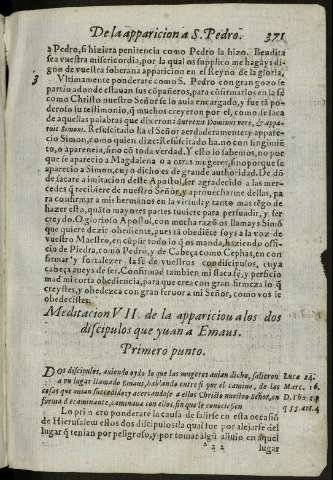 De la apparicion a S. Pedro. 371
a Pedro, si hiziera penitencia como Pedro la hizo. Bendita
sea vuestra misericordia, por la qual os supplico me hagays di-
gno de vuestra soberana apparicion en el Reyno de la gloria.
3 Vltimamente ponderarè como S. Pedro con gran gozo se
partio adonde estauan sus cõpañeros, para cõfirmarlos en la fè
como Christo nuestro Señor se lo auia encargado, y fue tã po-
deroso su testimonio, q̃ muchos creyeron por el, como se saca
de aquellas palabras que dixeron: Surrexit Dominus vere, & appa-
ruit Simoni. Resuscitado ha el Señor verdaderamente, y appare-
cio Simon, como quien dize: Resuscitado ha, no con fingimiẽ-
to, o aparencia, sino cõ toda verdad. Y esto lo sabemos, no por
que se aparecio a Magdalena o a otras mugeres, sino porque se
aparecio a Simon, cuyo dicho es de grande authoridad. De dõ
de sacarè a imitacion deste Apostol, ser agradecido a las mer-
cedes q̃ recibiere de nuestro Señor, y aprouecharme dellas, pa-
ra confirmar a mis hermanos en la virtud, y tanto mas tẽgo de
hazer esto, quãto mayores partes tuuiere para persuadir, y ser
creydo. O glorioso Apostol, con mucha razõ os llamays Simõ
que quiere dezir obediente, pues tã obediẽte soys a la voz de
vuestro Maestro, en cũplir todo lo q̃ os manda, haziendo offi-
cio de Piedra, como Pedro, y de Cabeça como Cephas, en con
firmar y fortalezer la fè de vuestros condiscipulos, cuya
cabeça aueys de ser. Confirmad tambien mi flaca fè, y perficio
nad mi corta obediencia, para que crea con gran firmeza lo q̃
creystes, y obedezca con gran feruor a mi Señor, como vos le
obedecistes.
Meditacion VII. de la apparicion a los dos
discipulos que yuan a Emaus.
Primero punto.
Dos discipulos, auiendo oydo lo que las mugeres auian dicho, salieron Luca 24.
a vn lugar llamado Emaus, hablando entre si por el camino, de las Marc. 16.
cosas que auian succedido; y acercandose a ellos Christo nuestro Señor, en D. Tho. 3. p
forma de caminante, caminaua con ellos, sin que le conociessen q 55. art. 4
Lo primero ponderarè la causa de salirse en esta occasiõ
de Hierusalem estos dos discipulos: la qual fue por alejarse del
lugar q̃ tenian por peligroso, y por tomar algũ aliuio en aquel
lugar